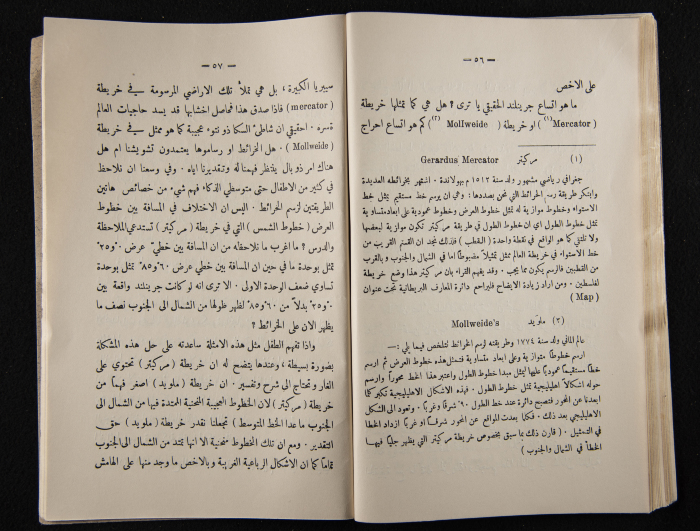 — ٥٦ —
على الاخص
ما هو اتساع جرينلند الحقيقي يا ترى ؟ هل هي كما تمثلها خريطة
(Mercator)(١) او خريطة (Mollweide)(٢) كم هو اتساع احراج
(١) مركيتر Gerardus Mercator
جغرافي رياضي مشهور ولد سنة ١٥١٢ م بهولاندة . اشتهر بخرائطه العديدة
وابتكر طريقة رسم الخرائط التي نحن بصددها : وهي ان يرسم خط مستقيم يمثل خط
الاستواء وخطوط موازية له تمثل خطوط العرض وخطوط عمودية على ابعاد متساوية
تمثل خطوط الطول اي ان خطوط الطول في طريقة مركيتر تكون موازية لبعضها
ولا تلتقي كما هو الواقع في نقطة واحدة ( القطب ) فلذلك نجد ان القسم القريب من
خط الاستواء في خريطة العالم ممثل تمثيلاً مضبوطاً اما في الشمال والجنوب وبالقرب
من القطبين فالرسم يكون مما يجب . وقد يفهم القراء بان مركيتر هذا وضع خريطة
لفلسطين . ومن اراد زيادة الايضاح فليراجع دائرة المعارف البريطانية تحت عنوان
( Map )
(٢) ملويد Mollweide's
عالم الماني ولد سنة ١٧٧٤ وطريقته لرسم الخرائط تتلخص فيما يلي :—
ارسم خطوطاً متوازية وعلى ابعاد متساوية فتمثل هذه خطوط العرض ثم ارسم
خطاً مستقيماً عمودياً عليها ليمثل مبدا خطوط الطول واعتبر هذا الخط محوراً وارسم
حوله اشكالاً اهليليجية تمثل خطوط الطول . فهذه الاشكال الاهليليجية تكبر كلما
ابعدنا عن المحور فتصبح دائرة عند خط الطول ٩٠° شرقاً وغرباً . وتعود الى الشكل
الاهليليجي بعد ذلك . فكلما بعدت المواقع عن المحور شرقاً او غرباً ازداد الخطا
في التمثيل . ( قارن ذلك بما سبق بخصوص خريطة مركيتر التي يظهر جلياً فيها
الخطأ في الشمال والجنوب )
— ٥٧ —
سيبريا الكبيرة ، بل هي تملأ تلك الاراضي المرسومة في خريطة
(mercator) فاذا صدق هذا فحاصل اخشابها قد يسد حاجيات العالم
قسره . احقيقي ان شاطئ السكا ذو نتوء عجيبة كما هو ممثل في خريطة
(Mollweide) . هل الخرائط او رساموها يعتمدون تشويشنا ام هل
هناك امر ذو بال ينتظر فهمنا له وتقديرنا اياه . وفي وسعنا ان نلاحظ
في كثير من الاطفال حتى متوسطي الذكاء فهم شيء من خصائص هاتين
الطريقتين لرسم الخرائط . اليس ان الاختلاف في المسافة بين خطوط
العرض ( خطوط الشمس ) التي في خريطة ( مركيتر ) تستدعي الملاحظة
والدرس ؟ ما اغرب ما نلاحظه من ان المسافة بين خطيّ عرض ٠° و٢٥°
تمثل بوحدة ما في حين ان المسافة بين خطي عرض ٦٠° و٨٥° تمثل بوحدة
تساوي ضعف الوحدة الاولى . الا ترى انه لو كانت جرينلند واقعة بين
٠° و٢٥° بدلاً من ٦٠° و٨٥° لظهر طولها من الشمال الى الجنوب نصف ما
يظهر الان على الخرائط ؟
واذا تفهم الطفل مثل هذه الامثلة ساعدته على حل هذه المشكلة
بصورة بسيطة ، وعندها يتضح له ان خريطة ( مركيتر ) تحتوي على
الغاز وتحتاج الى شرح وتفسير . ان خريطة ( ملويد ) اصغر فهماً من
خريطة ( مركيتر ) لان الخطوط العجيبة المنحنية الممتدة فيها من الشمال الى
الجنوب ما عدا الخط المتوسط ) تجعلنا نقدر خريطة ( ملويد ) حق
التقدير . ومع ان تلك الخطوط منحنية الا انها تمتد من الشمال الى الجنوب
تماماً كما ان الاشكال الرباعية الغريبة وبالاخص ما وجد منها على الهامش